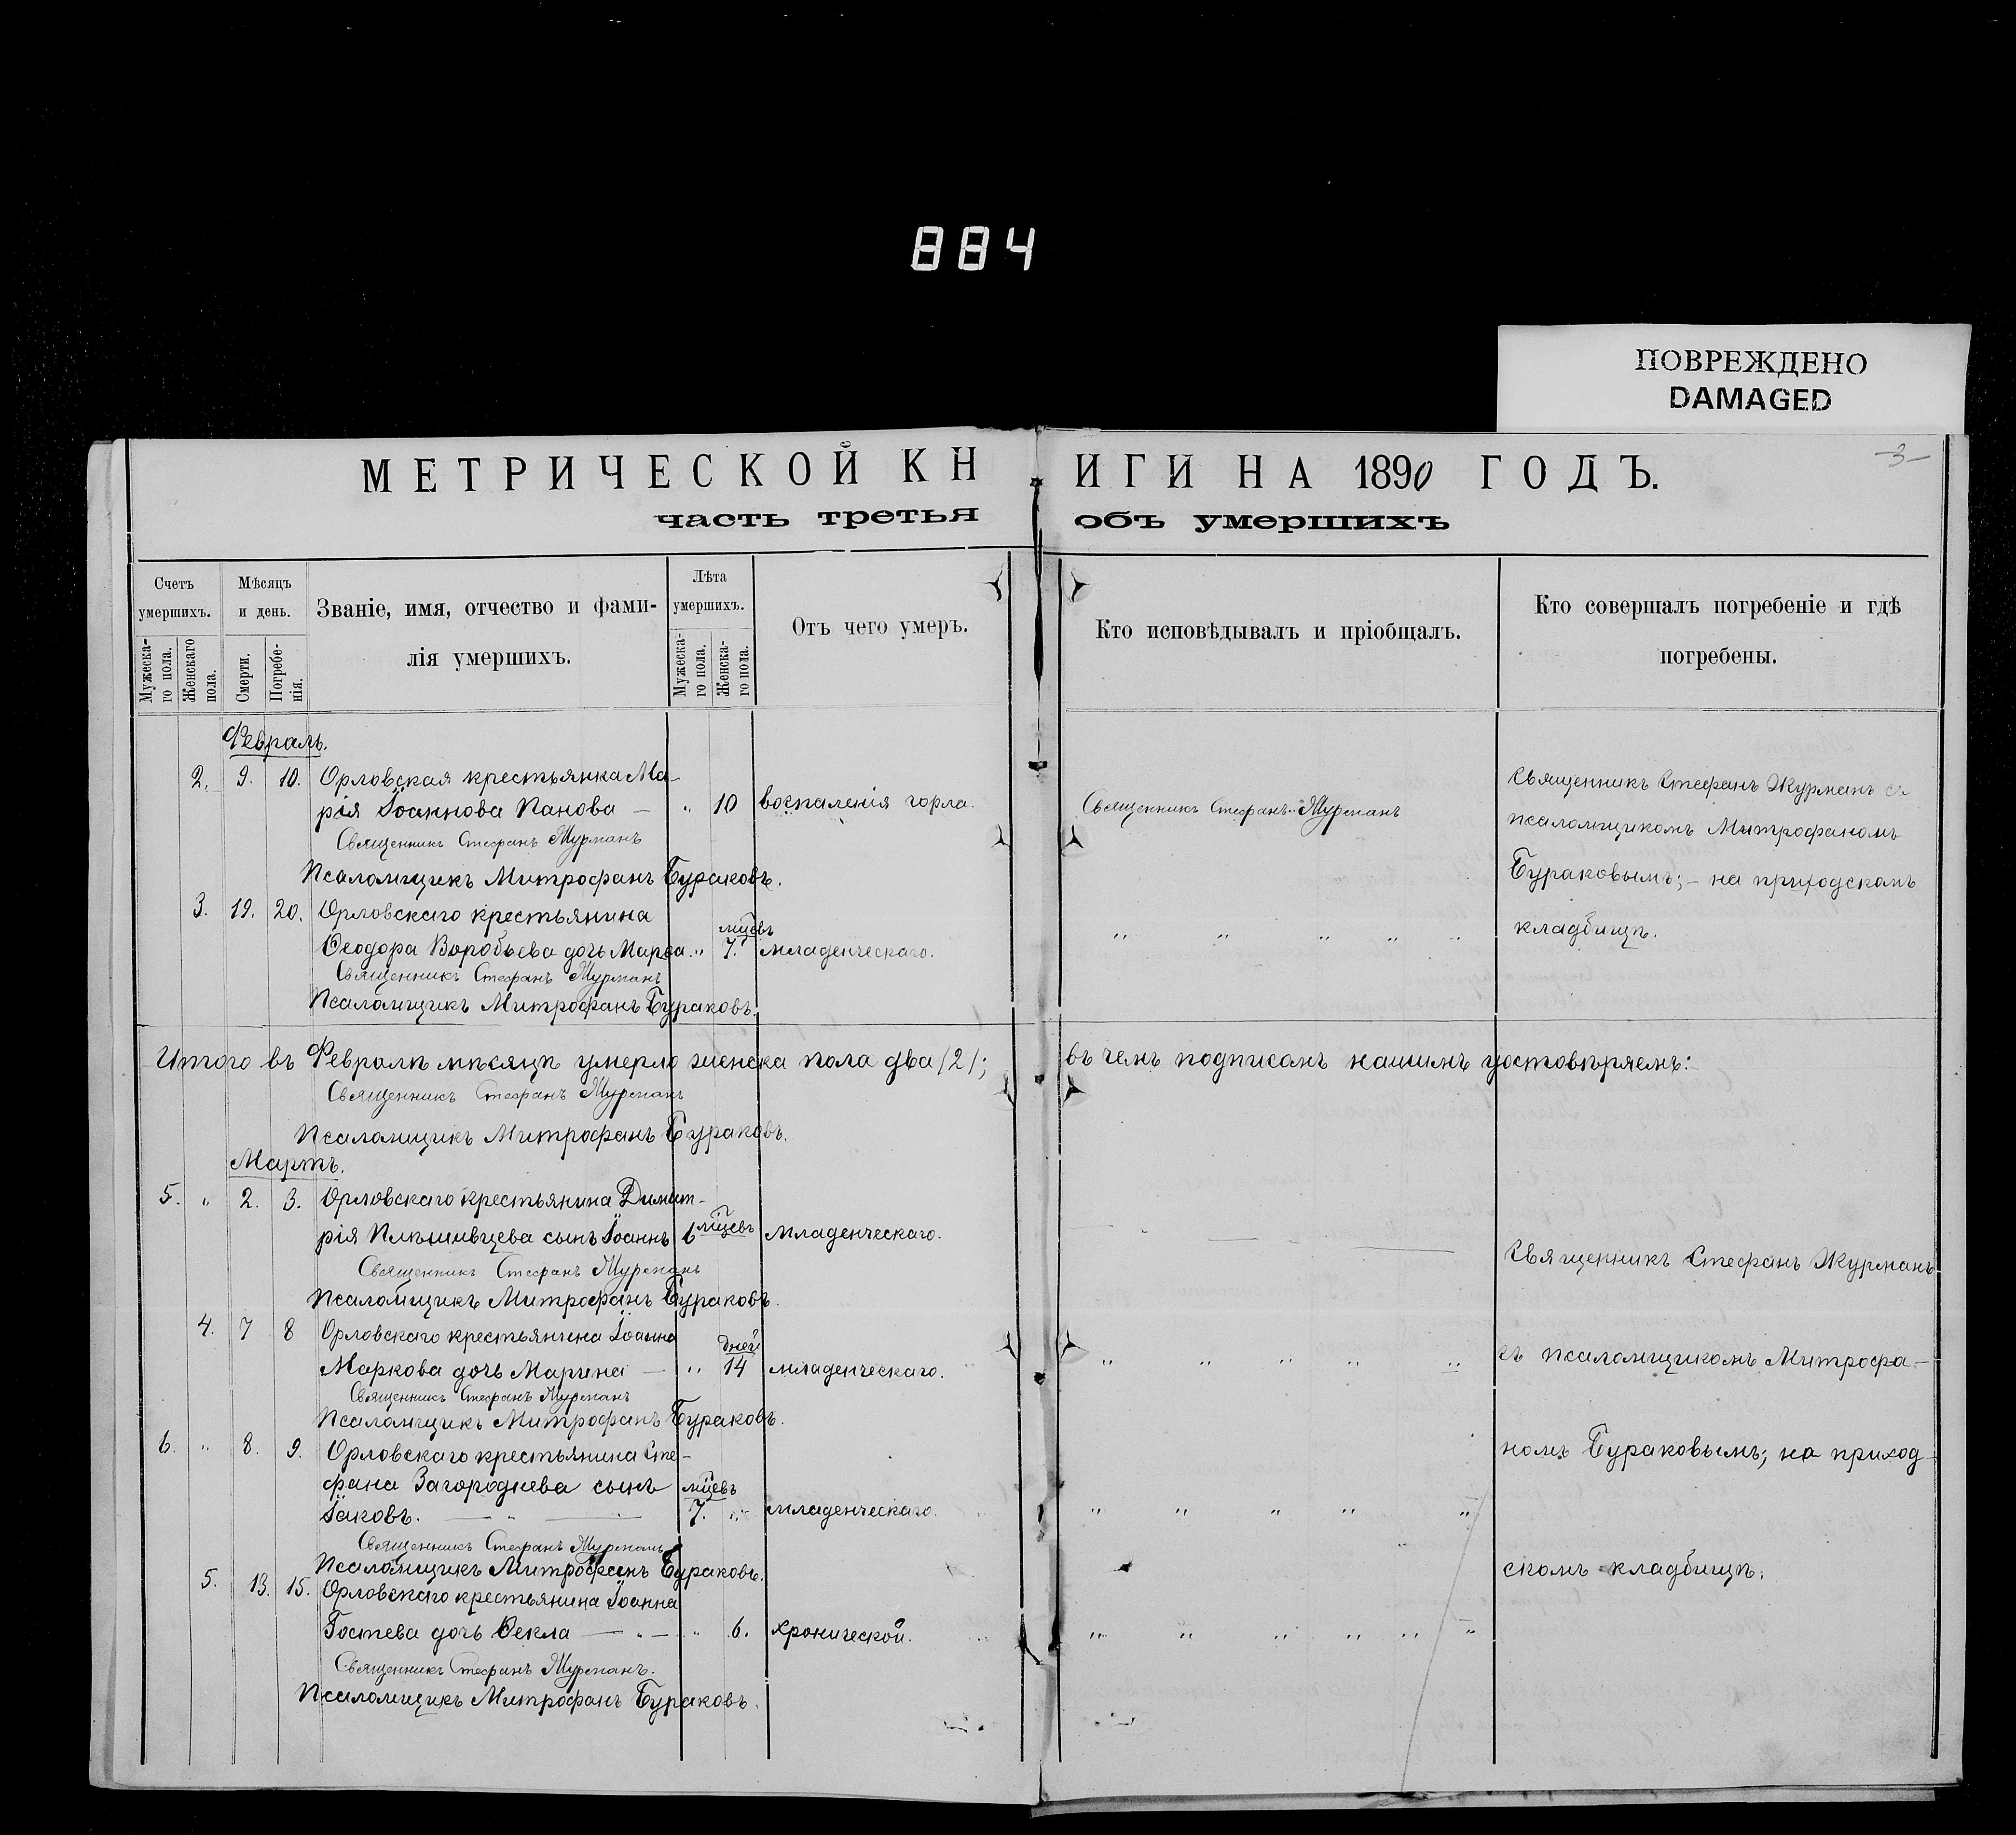 884
ПОВРЕЖДЕНО
DAMAGED
-3-
МЕТРИЧЕСКОЙ КНИГИ НА 1890 ГОДЪ.
часть третья объ умершихъ
Счетъ умершихъ.
Мужескаго пола.
Женскаго пола.
Мѣсяцъ и день.
Смерти.
Погребенія.
Званіе, имя, отчество и фами-
лія умершихъ.
Лѣта умершихъ.
Мужескаго пола.
Женскаго пола.
Отъ чего умеръ.
Кто исповѣдывалъ и пріобщалъ.
Кто совершалъ погребеніе и гдѣ
погребены.
Февраль.
2. 9. 10. Орловская крестьянка Ма-
рія Іоаннова Панова — " 10 воспаленія горла. Священникъ Стефанъ Журманъ
Священникъ Стефанъ Журманъ съ
псаломщикомъ Митрофаномъ
Бураковымъ; - на приходскомъ
кладбищѣ.
Священникъ Стефанъ Журманъ
Псаломщикъ Митрофанъ Бураковъ.
3. 19. 20. Орловскаго крестьянина
Ѳеодора Воробьева дочь Марѳа. " 7. мцевъ младенческаго. " " " " "
Священникъ Стефанъ Журманъ
Псаломщикъ Митрофанъ Бураковъ.
Итого въ Февралѣ мѣсяцѣ умерло женска пола два /2/; въ чемъ подписомъ нашимъ удостовѣряемъ:
Священникъ Стефанъ Журманъ
Псаломщикъ Митрофанъ Бураковъ.
Мартъ.
5. " 2. 3. Орловскаго крестьянина Димит-
рія Плѣшивцева сынъ Іоаннъ 6 мцевъ младенческаго.
Священникъ Стефанъ Журманъ
Псаломщикъ Митрофанъ Бураковъ.
Священникъ Стефанъ Журманъ
съ псаломщикомъ Митрофа-
номъ Бураковымъ; на приход-
скомъ кладбищѣ.
4. 7 8 Орловскаго крестьянина Іоанна
Маркова дочь Марина — " 14 дней младенческаго. " " " " "
Священникъ Стефанъ Журманъ
Псаломщикъ Митрофанъ Бураковъ.
6. " 8. 9. Орловскаго крестьянина Сте-
фана Загороднева сынъ
Іаковъ. — " — 7. мцевъ " младенческаго. " " " " "
Священникъ Стефанъ Журманъ
Псаломщикъ Митрофанъ Бураковъ.
5. 13. 15. Орловскаго крестьянина Іоанна
Гостева дочь Ѳекла — " — " 6. хронической. " " " " " "
Священникъ Стефанъ Журманъ.
Псаломщикъ Митрофанъ Бураковъ.